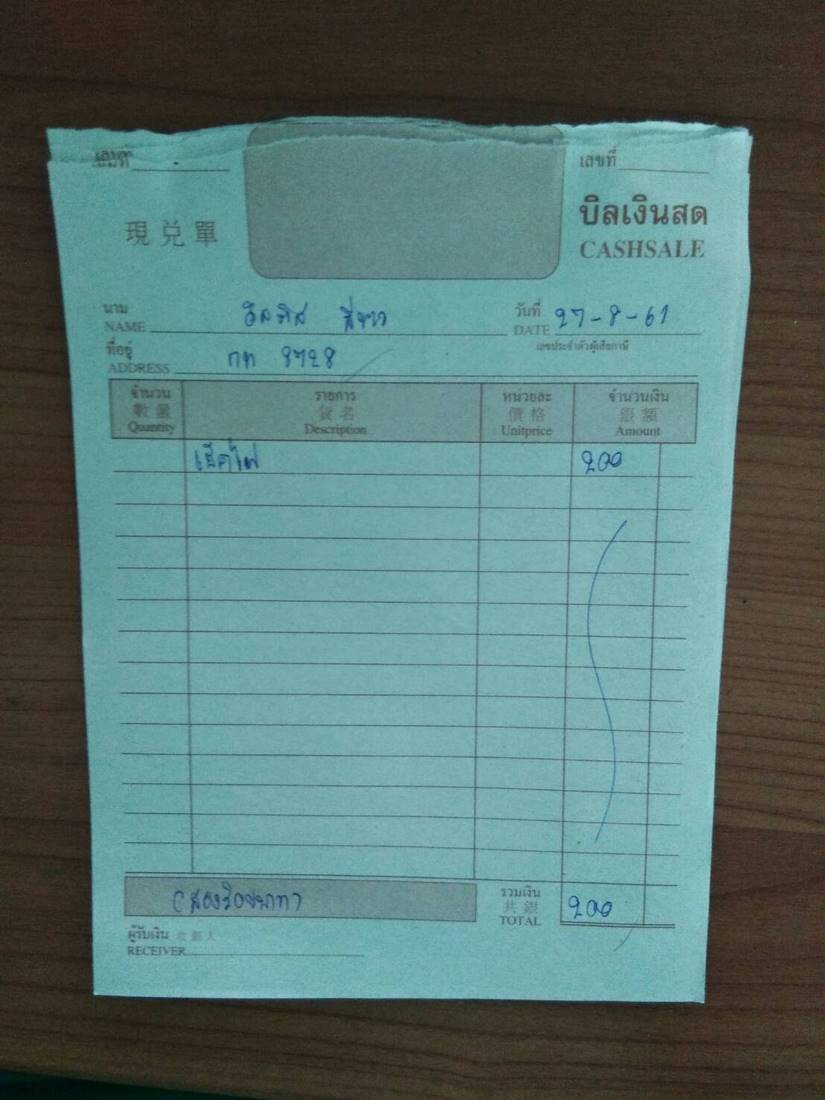 เลขที่ เลขที่
現兑單 บิลเงินสด
CASHSALE
นาม วันที่ 27-8-61
NAME DATE
เลขประจำตัวผู้เสียภาษี
ที่อยู่ กท
ADDRESS
จำนวน รายการ หน่วยละ จำนวนเงิน
數量 貨名 價格 銀額
Quantity Description Unitprice Amount
เช็คไฟ 200
(สองร้อยบาท) รวมเงิน 200
共銀
TOTAL
ผู้รับเงิน
RECEIVER